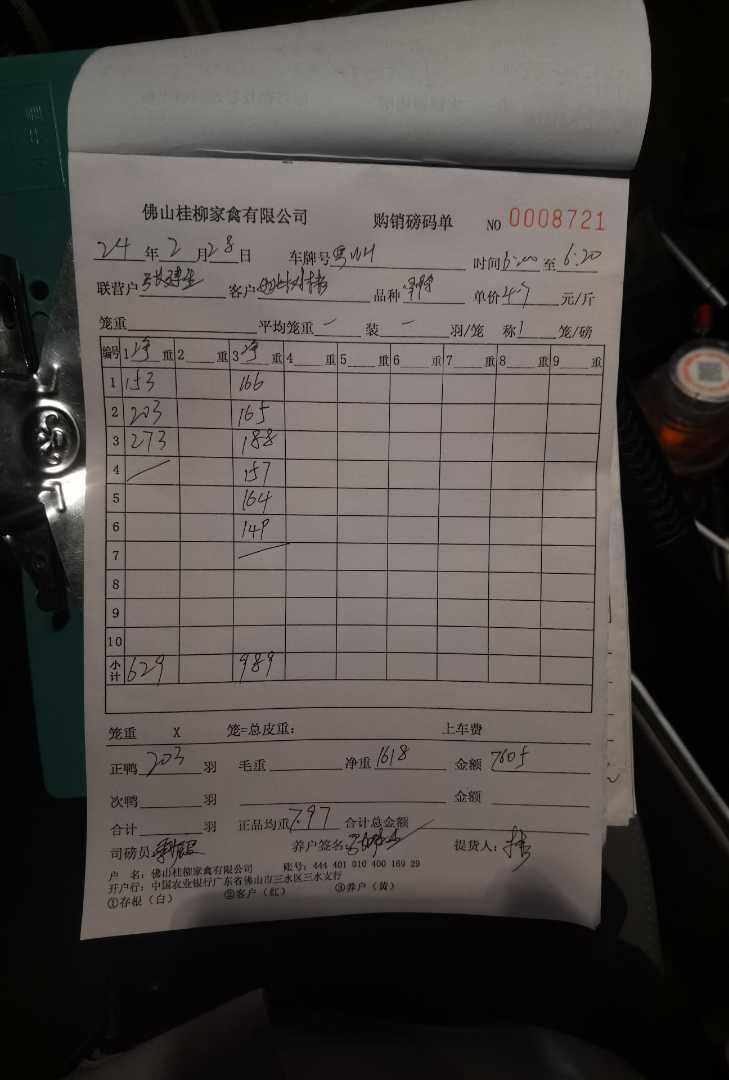 佛山桂柳家禽有限公司 购销磅码单 NO 0008721
24 年 2 月 28 日 车牌号 时间 6:00 至 6:20
联营户 客户 品种 单价 4.7 元/斤
笼重 平均笼重 一 装 一 羽/笼 称 1 笼/磅
编号 1 净 重 2 重 3 净 重 4 重 5 重 6 重 7 重 8 重 9 重
1 153 166
2 203 165
3 273 188
4 157
5 164
6 149
7
8
9
10
小计 629 989
笼重 X 笼=总皮重: 上车费
正鸭 203 羽 毛重 净重 1618 金额 7605
次鸭 羽 金额
合计 羽 正品均重 7.97 合计总金额
司磅员 养户签名 提货人:
户 名: 佛山桂柳家禽有限公司 账号: 444 401 010 400 169 29
开户行: 中国农业银行广东省佛山市三水区三水支行
①存根(白) ②客户(红) ③养户(黄)